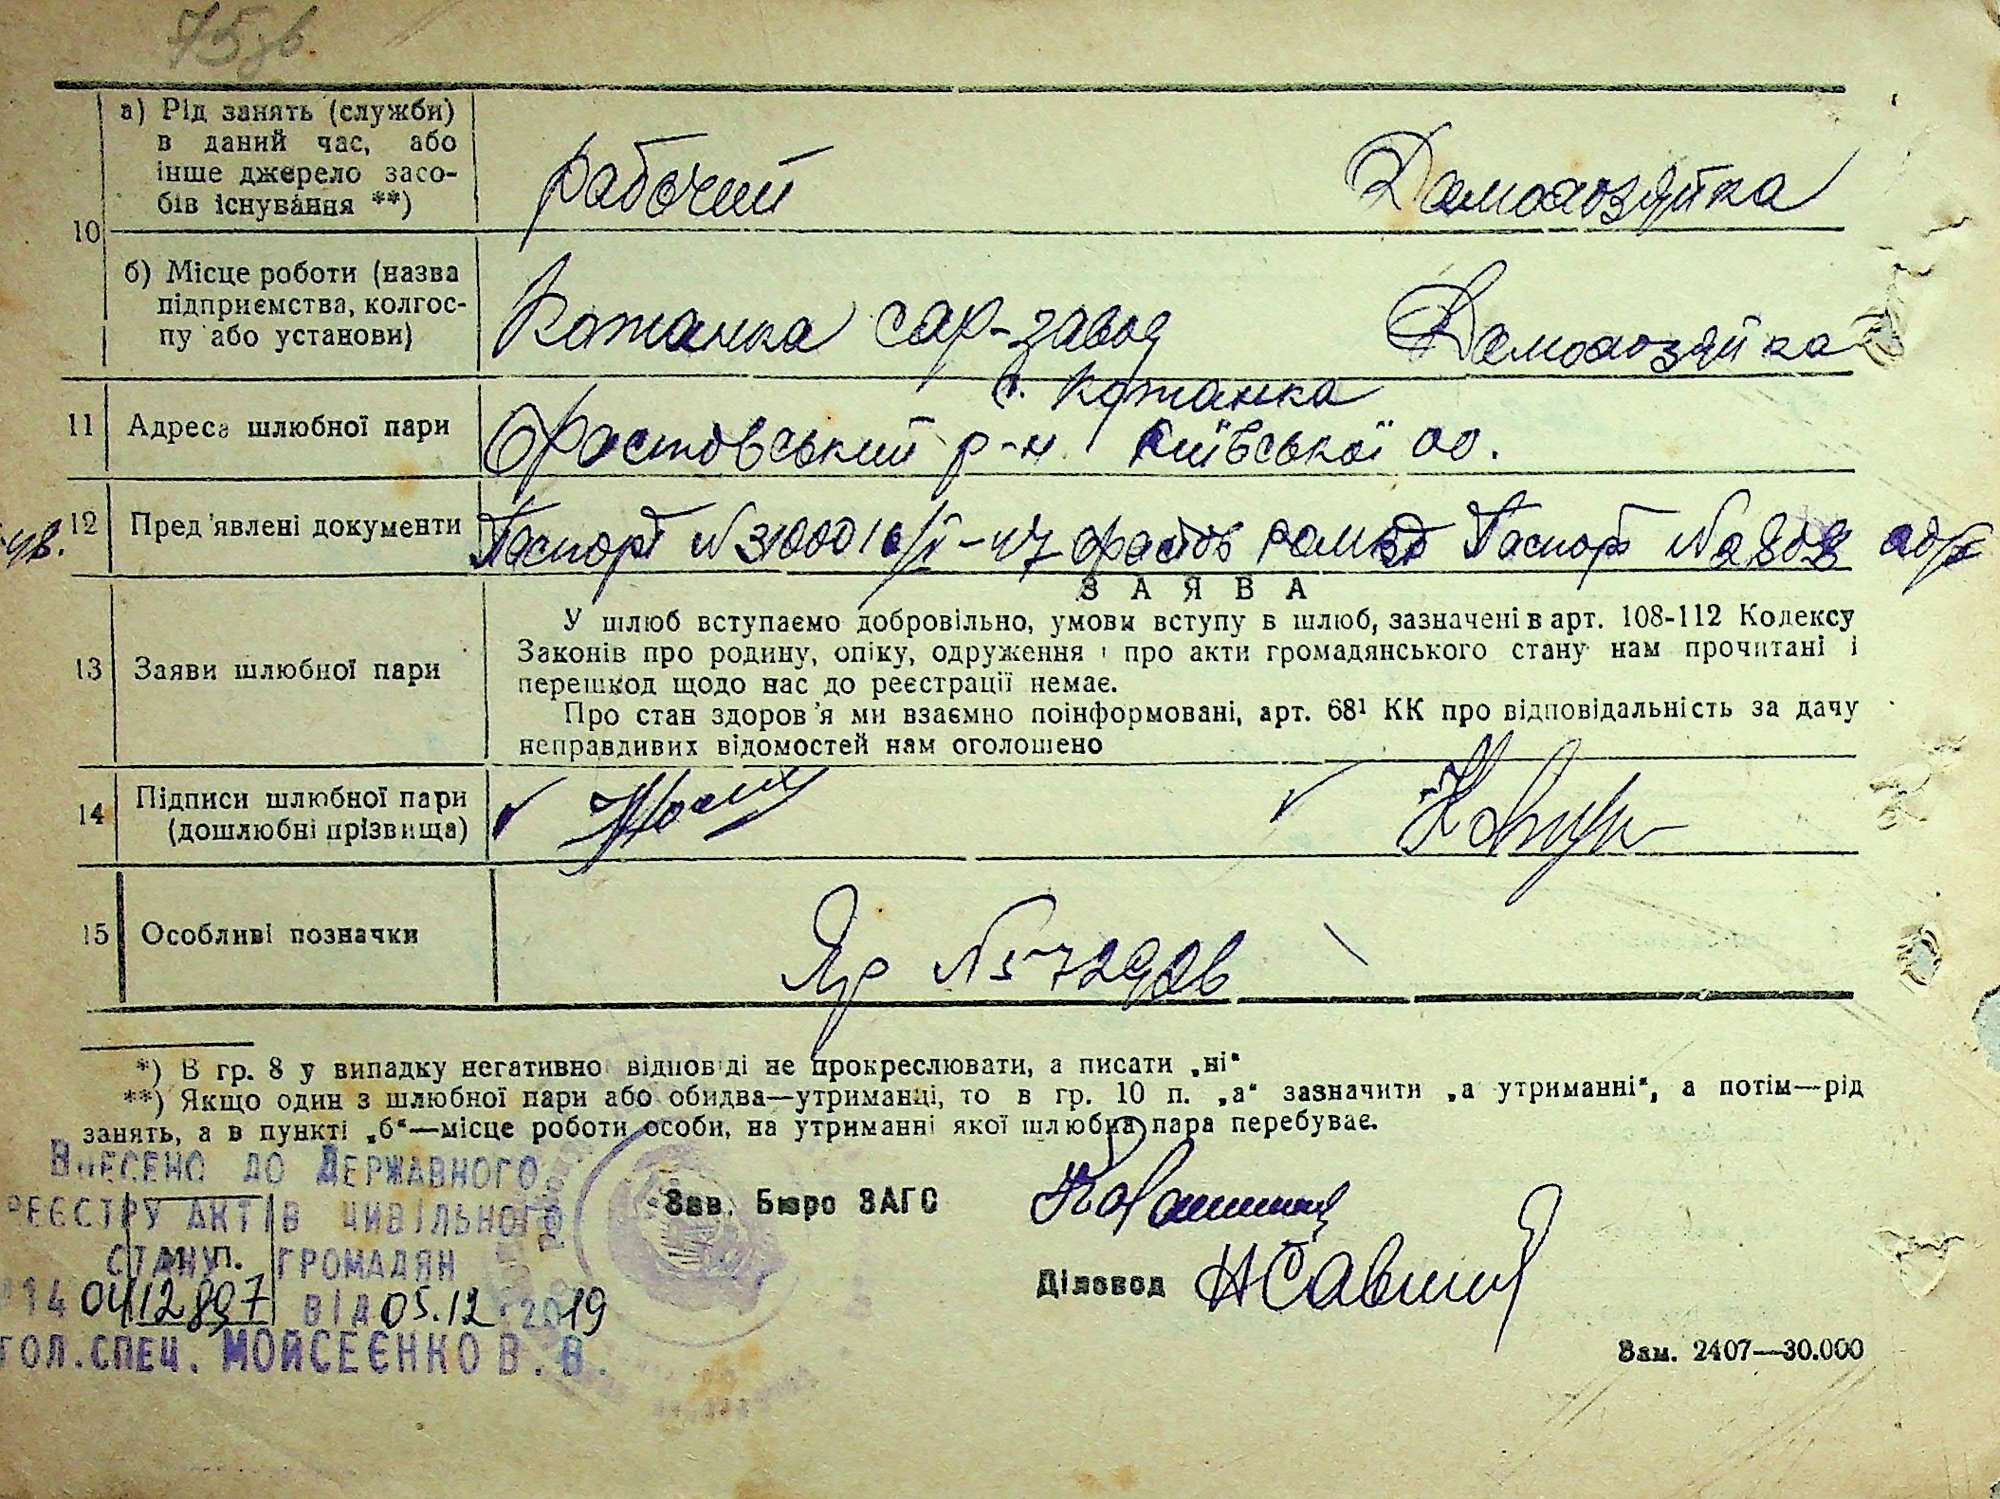 75зв.
10
а) Рід занять (служби)
в даний час, або
інше джерело засо-
бів існування **)
рабочий
Домохозяйка
б) Місце роботи (назва
підприємства, колгос-
пу або установи)
Кожанка сар-завод
Домохозяйка
11 Адреса шлюбної пари
с. Кожанка
Фастовський р-н Київської об.
12 Пред'явлені документи
Паспорт № Фастов Паспорт №
ЗАЯВА
13 Заяви шлюбної пари
У шлюб вступаємо добровільно, умови вступу в шлюб, зазначені в арт. 108-112 Кодексу
Законів про родину, опіку, одруження і про акти громадянського стану нам прочитані і
перешкод щодо нас до реєстрації немає.
Про стан здоров'я ми взаємно поінформовані, арт. 68¹ КК про відповідальність за дачу
неправдивих відомостей нам оголошено
14 Підписи шлюбної пари
(дошлюбні прізвища)
15 Особливі позначки
№
*) В гр. 8 у випадку негативної відповіді не прокреслювати, а писати „ні“
**) Якщо один з шлюбної пари або обидва—утриманці, то в гр. 10 п. „а“ зазначити „а утриманні“, а потім—рід
занять, а в пункті „б“—місце роботи особи, на утриманні якої шлюбна пара перебуває.
Внесено до Державного
реєстру актів цивільного
стану громадян
М. П.
14 0412897 від 05.12 2019
гол. спец. Мойсеєнко В. В.
Зав. Бюро ЗАГС
Діловод
Зам. 2407—30.000